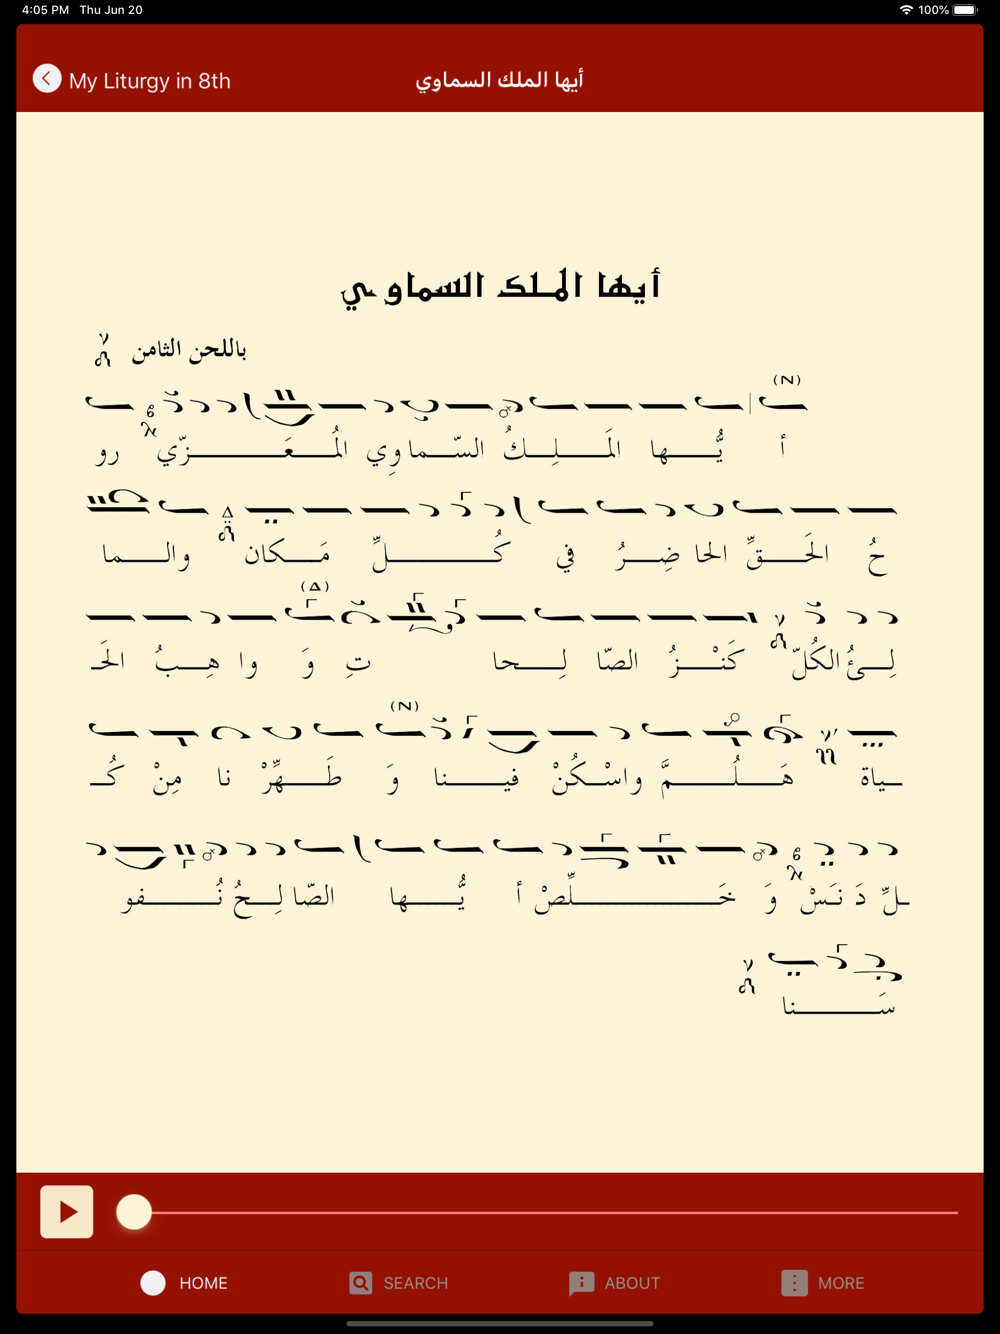 4:05 PM Thu Jun 20 100%
My Liturgy in 8th أيها الملك السماوي
أيها الملك السماوي
باللحن الثامن
(N)
أ يُّــــها المَــــلِــكُ السّــماوِي المُــعَــــزّي رو
حُ الحَــقِّ الحا ضِــرُ في كُــــلِّ مَــكان والــــما
(Δ)
لِــئُ الكُلّ كَنْــزُ الصّا لِــــحا تِ وَ وا هِــبُ الحَـ
(N)
ـياة هَــــلُــــمَّ واسْــكُنْ فيــــنا وَ طَــــهِّرْ نا مِنْ كُـ
ـلِّ دَ نَــسْ وَ خَــــلِّصْ أ يُّــــها الصّا لِــحُ نُــــفو
سَــــنا
HOME SEARCH ABOUT MORE